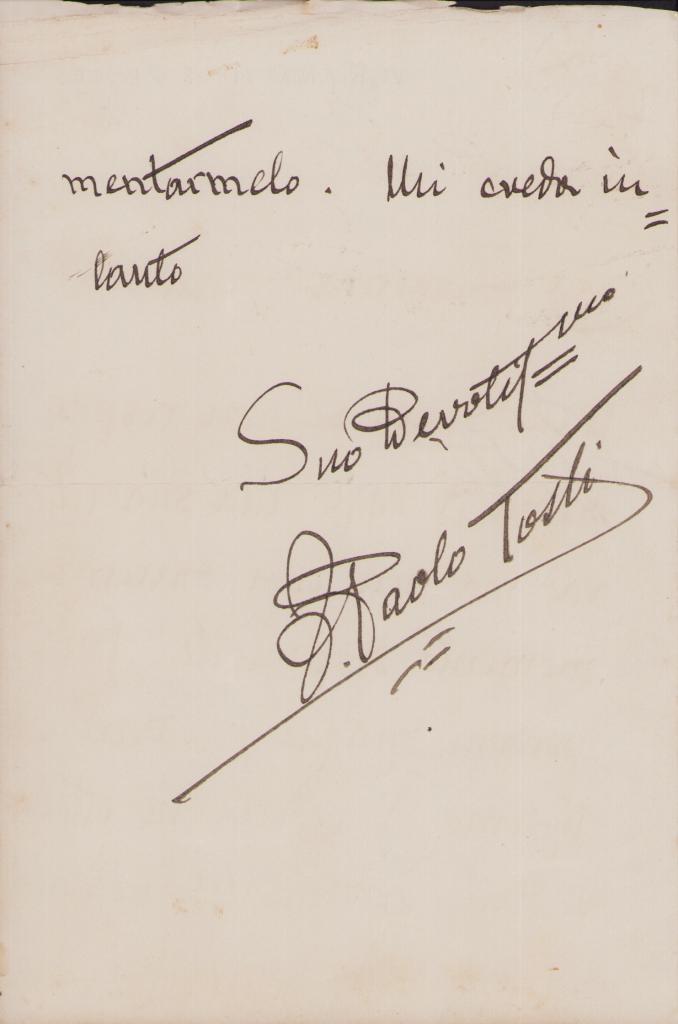 mentarmelo. Mi creda in=
tanto
Suo Devotissmo
F. Paolo Tosti